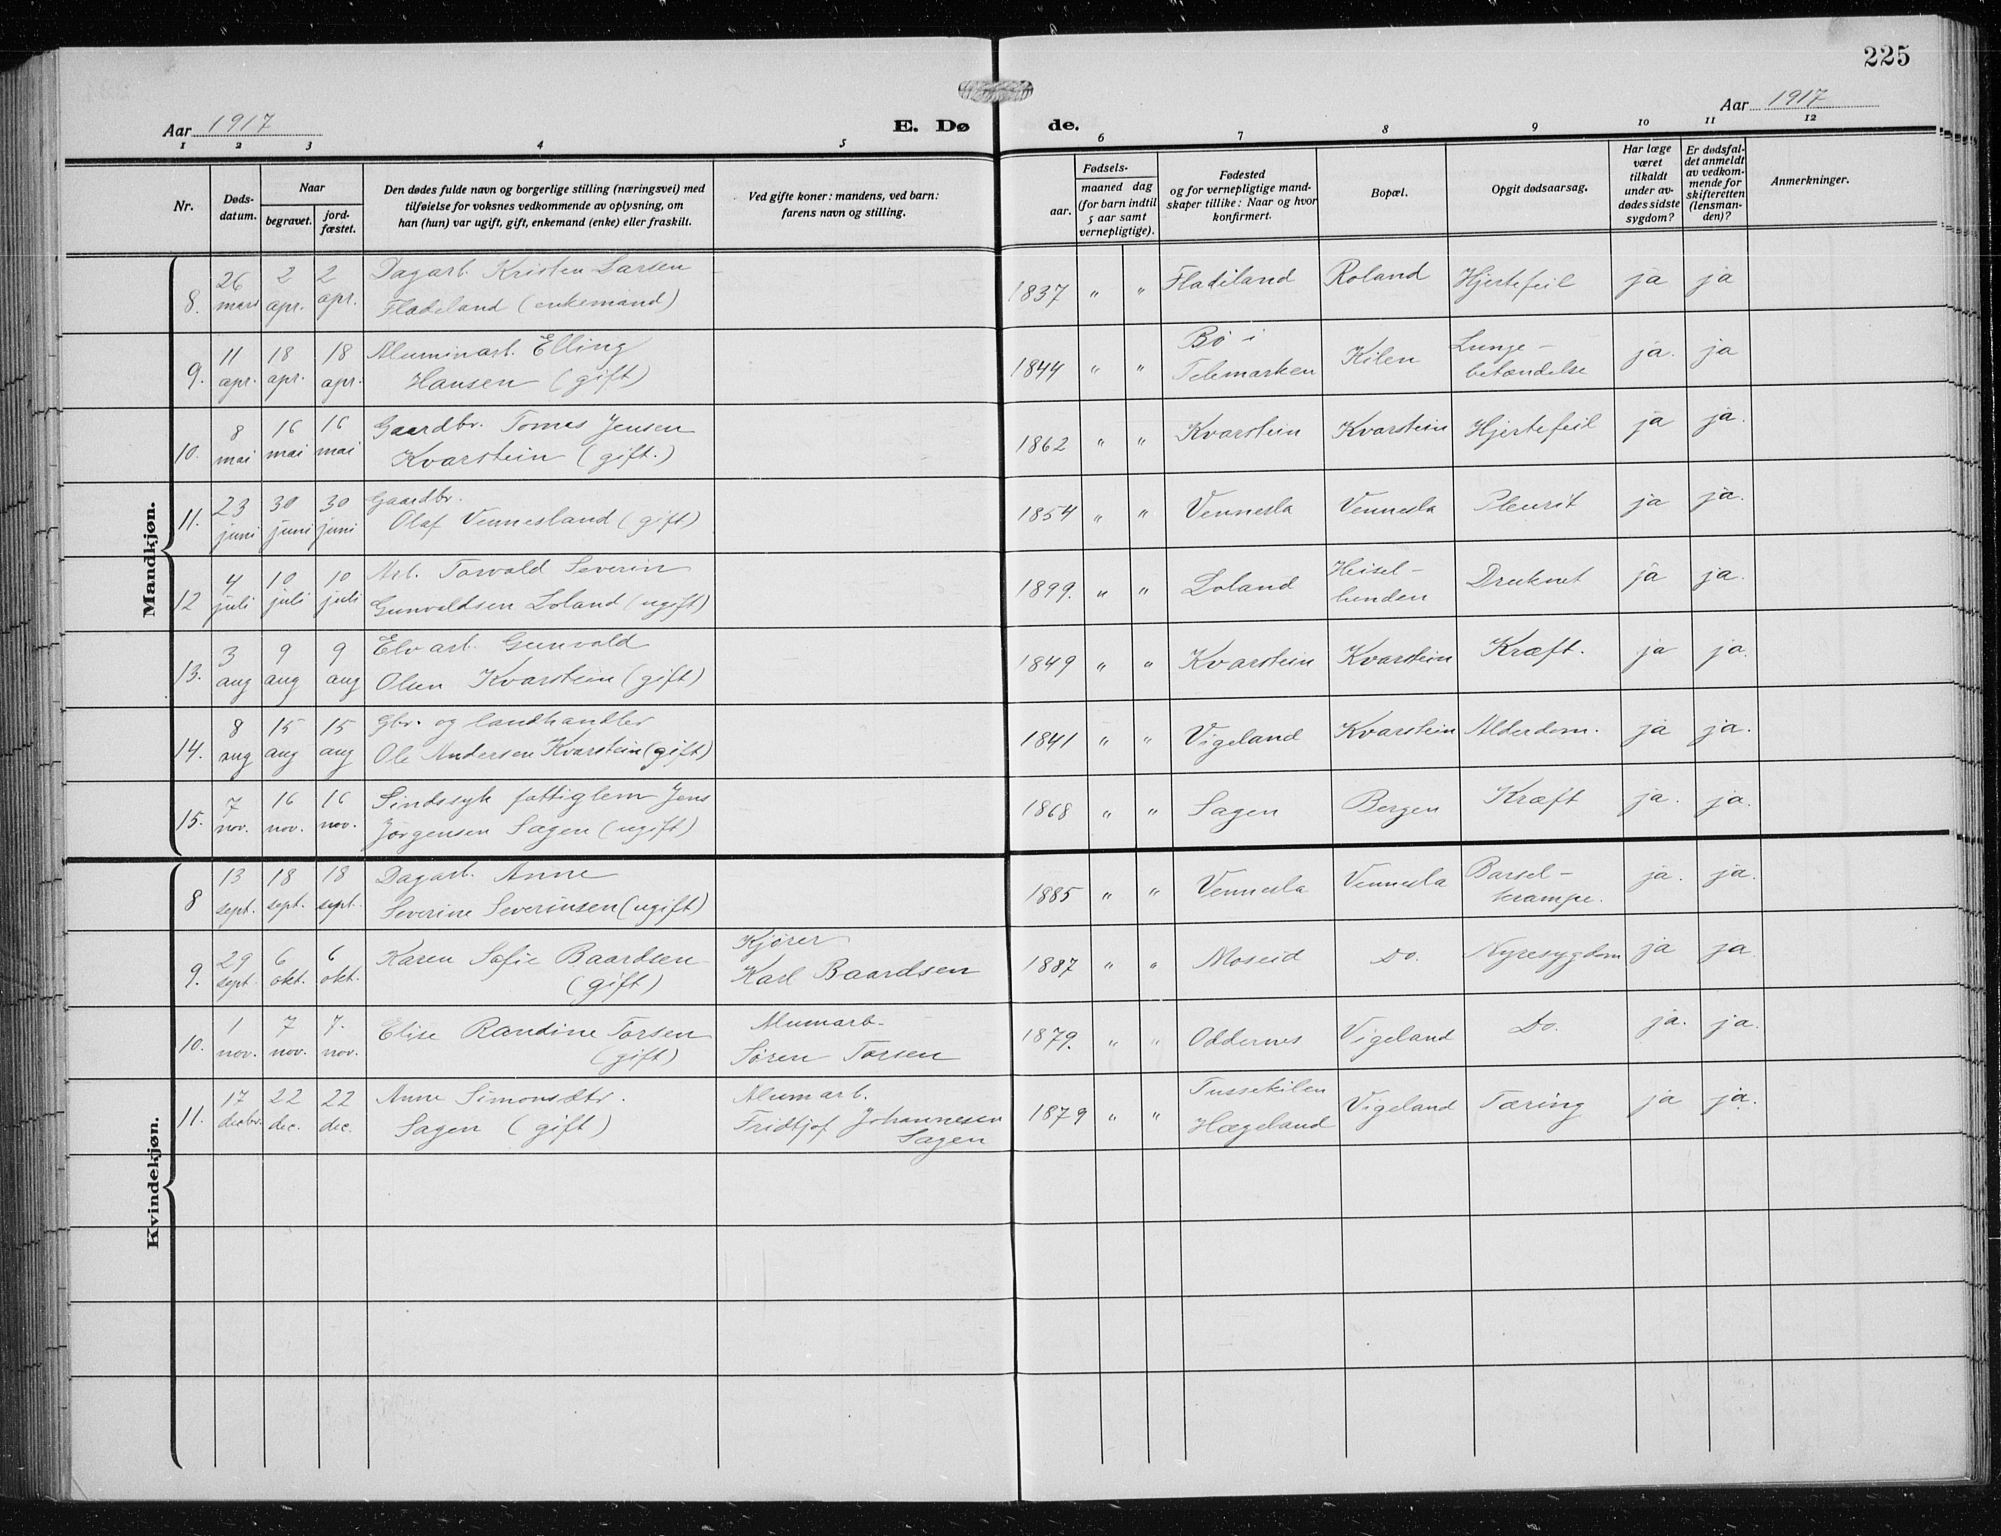 225
Aar 1917
E. Dø de.
Aar 1917
1 2 3 4 5 6 7 8 9 10 11 12
Nr.
Døds-
datum.
Naar
begravet.
jord-
fæstet.
Den dødes fulde navn og borgerlige stilling (næringsvei) med
tilføielse for voksnes vedkommende av oplysning, om
han (hun) var ugift, gift, enkemand (enke) eller fraskilt.
Ved gifte koner: mandens, ved barn:
farens navn og stilling.
Fødsels-
aar.
maaned dag
(for barn indtil
5 aar samt
vernepligtige).
Fødested
og for vernepligtige mand-
skaper tillike: Naar og hvor
konfirmert.
Bopæl.
Opgit dødsaarsag.
Har læge
været
tilkaldt
under av-
dødes sidste
sygdom?
Er dødsfal-
det anmeldt
av vedkom-
mende for
skifteretten
(lensman-
den)?
Anmerkninger.
Mandkjøn.
8. 26 mars 2 apr. 2 apr. Dagarb. Kristen Larsen
Fladeland (enkemand) 1837 " " Fladeland Roland Hjertefeil ja ja
9. 11 apr. 18 apr. 18 apr. Aluminarb. Elling
Hansen (gift) 1844 " " Bø i
Telemarken Kilen Lunge-
betændelse ja. ja
10. 8 mai 16 mai 16 mai Gaardbr. Tomas Jensen
Kvarstein (gift.) 1862 " " Kvarstein Kvarstein Hjertefeil ja ja.
11. 23 juni 30 juni 30 juni Gaardbr.
Olaf Vennesland (gift) 1854 " " Vennesla Vennesla Pleurit ja ja.
12 4 juli 10 juli 10 juli Arb. Torvald Severin
Gunvaldsen Loland (ugift) 1899. " " Loland Heisel-
henden Druknet ja ja.
13. 3 aug 9 aug 9 aug Elvarb. Gunvald
Olsen Kvarstein (gift) 1849 " " Kvarstein Kvarstein Kræft. ja ja.
14. 8 aug 15 aug 15 aug Gbr. og landhandler
Ole Andersen Kvarstein (gift) 1841 " " Vigeland Kvarstein Alderdom. ja ja.
15. 7 nov. 16 nov. 16 nov. Sindssyk fattiglem Jens
Jørgensen Sagen (ugift) 1868 " " Sagen Bergen Kræft ja. ja.
Kvindekjøn.
8 13 sept. 18 sept. 18 sept. Dagarb. Anne
Severine Severinsen (ugift) 1885 " " Vennesla Vennesla Barsel-
krampe. ja. ja.
9. 29 sept. 6 okt. 6 okt. Karen Sofie Baardsen
(gift) Kjører
Karl Baardsen 1887 " " Moseid Do. Nyresygdom ja ja.
10. 1 nov. 7 nov. 7. nov. Elise Randine Torsen
(gift) Alumarb.
Søren Torsen 1879. " " Oddernes Vigeland Do. ja. ja.
11. 17 decbr. 22 dec. 22 dec. Anne Simonsdtr.
Sagen (gift) Alumarb.
Fridtjof Johannesen
Sagen 1879 " " Tussekilen
Hægeland Vigeland Tæring ja ja.